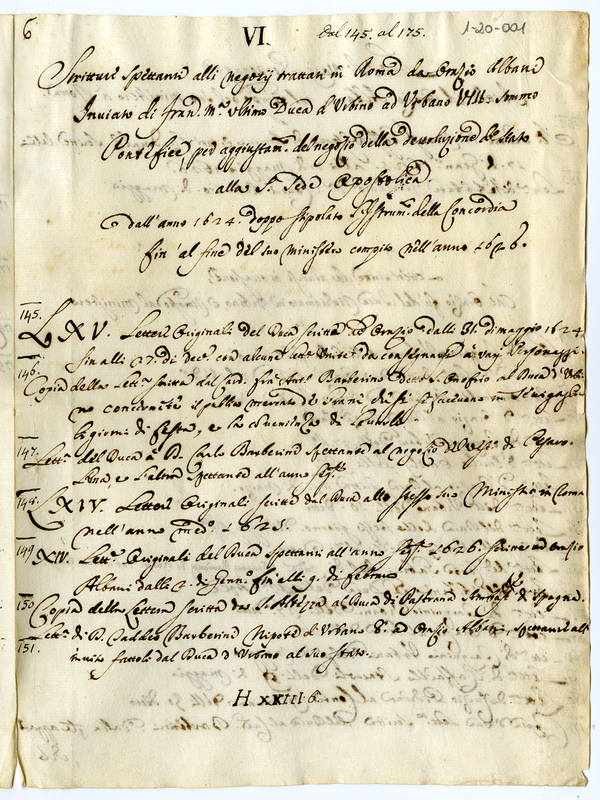 6
VI. dal 145. al 175. 1-20-001
Scritture spettanti alli negozij trattati in Roma da Orazio Albani
Inviato di Fran. M.ª ultimo Duca d'Urbino ad Urbano VIII. sommo
Pontefice per aggiustam.to del negozio della devoluzione dello Stato
alla S. Sede Apostolica.
dall'anno 1624. doppo stipolato l'Istrum.to della Concordia
fin'al fine del suo Ministero compito nell'anno 1626.
145.
LXV. Lettere Originali del Duca scritte ad Orazio dalli 31. di maggio 1624.
fin alli 27. di Dec.e con alcune lett.e unite da consegnarsi a varj Personaggi.
146.
Copia della lett.a scritta dal Card. fra Ant.o Barberino detto S. Onofrio al Duca d'Urbi-
no concernente il publico mercato di che si facevano in Sinigaglia
li giorni di festa, e la
147.
Lett.e del Duca a D. Carlo Barberino spettanti al negozio di Pesaro.
L'una, e l'altra spettanti all'anno
148.
LXIV. Lettere Originali scritte dal Duca allo stesso suo Ministro in Roma
nell'anno 1625.
149
XIV. Lett.e Originali del Duca spettanti all'anno 1626. scritte ad Orazio
Albani dalli 3. di Genn.o fin'alli 9. di Febraro
150
Copia della Lettera scritta da S. Altezza al Duca di Pastrana Amb.re di Spagna.
Lett.e di D. Taddeo Barberino Nipote d'Urbano 8. ad Orazio Albani, spettanti all'
151.
invito fattoli dal Duca d'Urbino al suo Stato.
H XXIII 6.